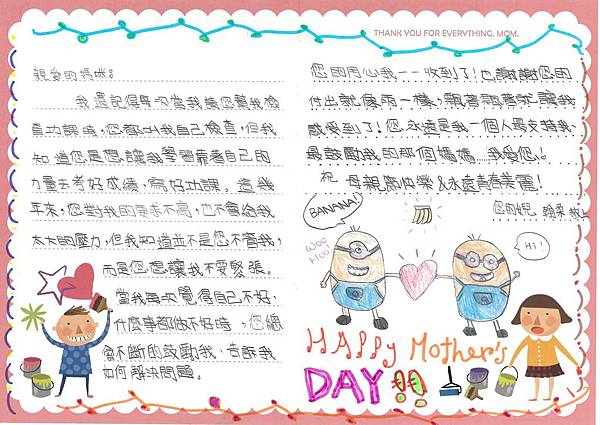 THANK YOU FOR EVERYTHING, MOM.
親愛的媽咪:
我還記得每次當我請您幫我檢
查功課時,您都叫我自己檢查,但我
知道您是想讓我學習靠著自己的
力量去考好成績,寫好功課。這幾
年來,您對我的要求不高,也不會給我
太大的壓力,但我知道並不是您不管我,
而是您想讓我不要緊張。
當我再次覺得自己不好,
什麼事都做不好時,您總
會不斷的鼓勵我,告訴我
如何解決問題。
您的用心我一一收到了!也謝謝您的
付出就像雨一樣,飄著飄著就讓我
感受到了!您永遠是我一個人最支持我、
最鼓勵我的那個媽媽……我愛您!
祝 母親節快樂&永遠青春美麗!
您的女兒 敬上
BANANA!
Hi!
HAPPY Mother's
DAY!!